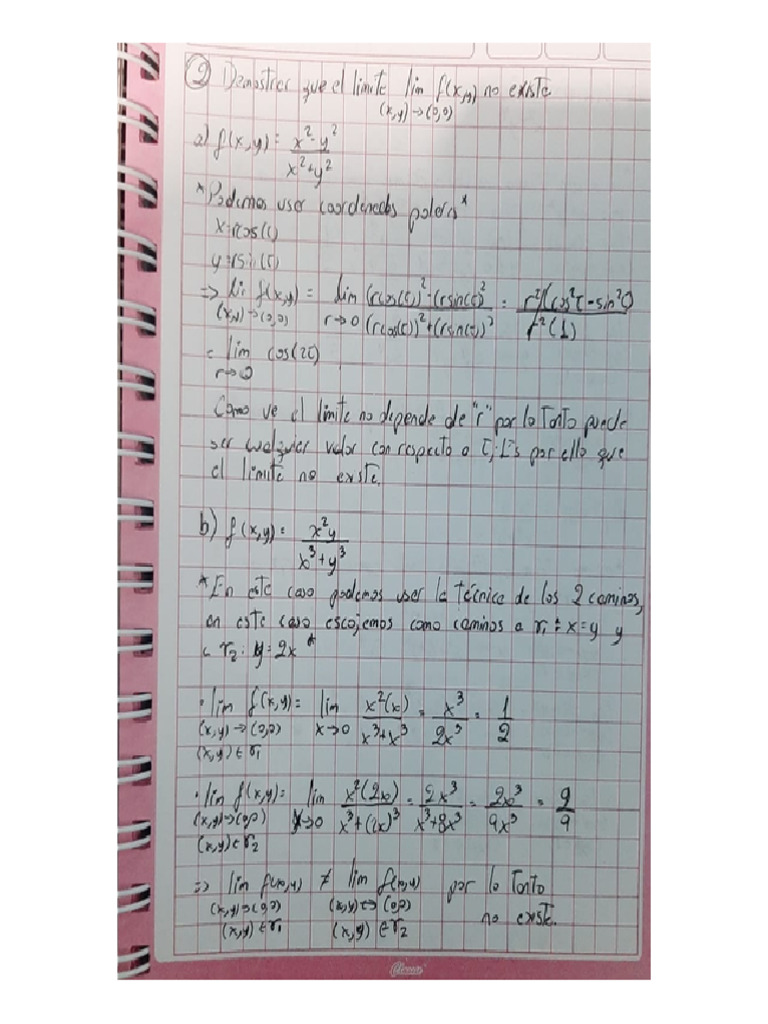 ② Demostrar que el limite lim f(x,y) no existe
(x,y)→(0,0)
a) f(x,y) = x²-y² / x²+y²
*Podemos usar coordenadas polares*
x=rcos(τ)
y=rsin(τ)
⇒ lim f(x,y) = lim (rcos(τ))²-(rsin(τ))² / (rcos(τ))²+(rsin(τ))² = r²(cos²τ-sin²τ) / r²(1)
(x,y)→(0,0) r→0
= lim cos(2τ)
r→0
Como ve el limite no depende de "r" por lo tanto puede
ser cualquier valor con respecto a τ; Es por ello que
el limite no existe.
b) f(x,y) = x²y / x³+y³
*En este caso podemos usar la técnica de los 2 caminos,
en este caso escojemos como caminos a r₁: x=y y
r₂: y=2x*
· lim f(x,y) = lim x²(x) / x³+x³ = x³ / 2x³ = 1/2
(x,y)→(0,0) x→0
(x,y)∈r₁
· lim f(x,y) = lim x²(2x) / x³+(2x)³ = 2x³ / x³+8x³ = 2x³ / 9x³ = 2/9
(x,y)→(0,0) x→0
(x,y)∈r₂
⇒ lim f(x,y) ≠ lim f(x,y) por lo tanto
(x,y)→(0,0) (x,y)→(0,0) no existe.
(x,y)∈r₁ (x,y)∈r₂